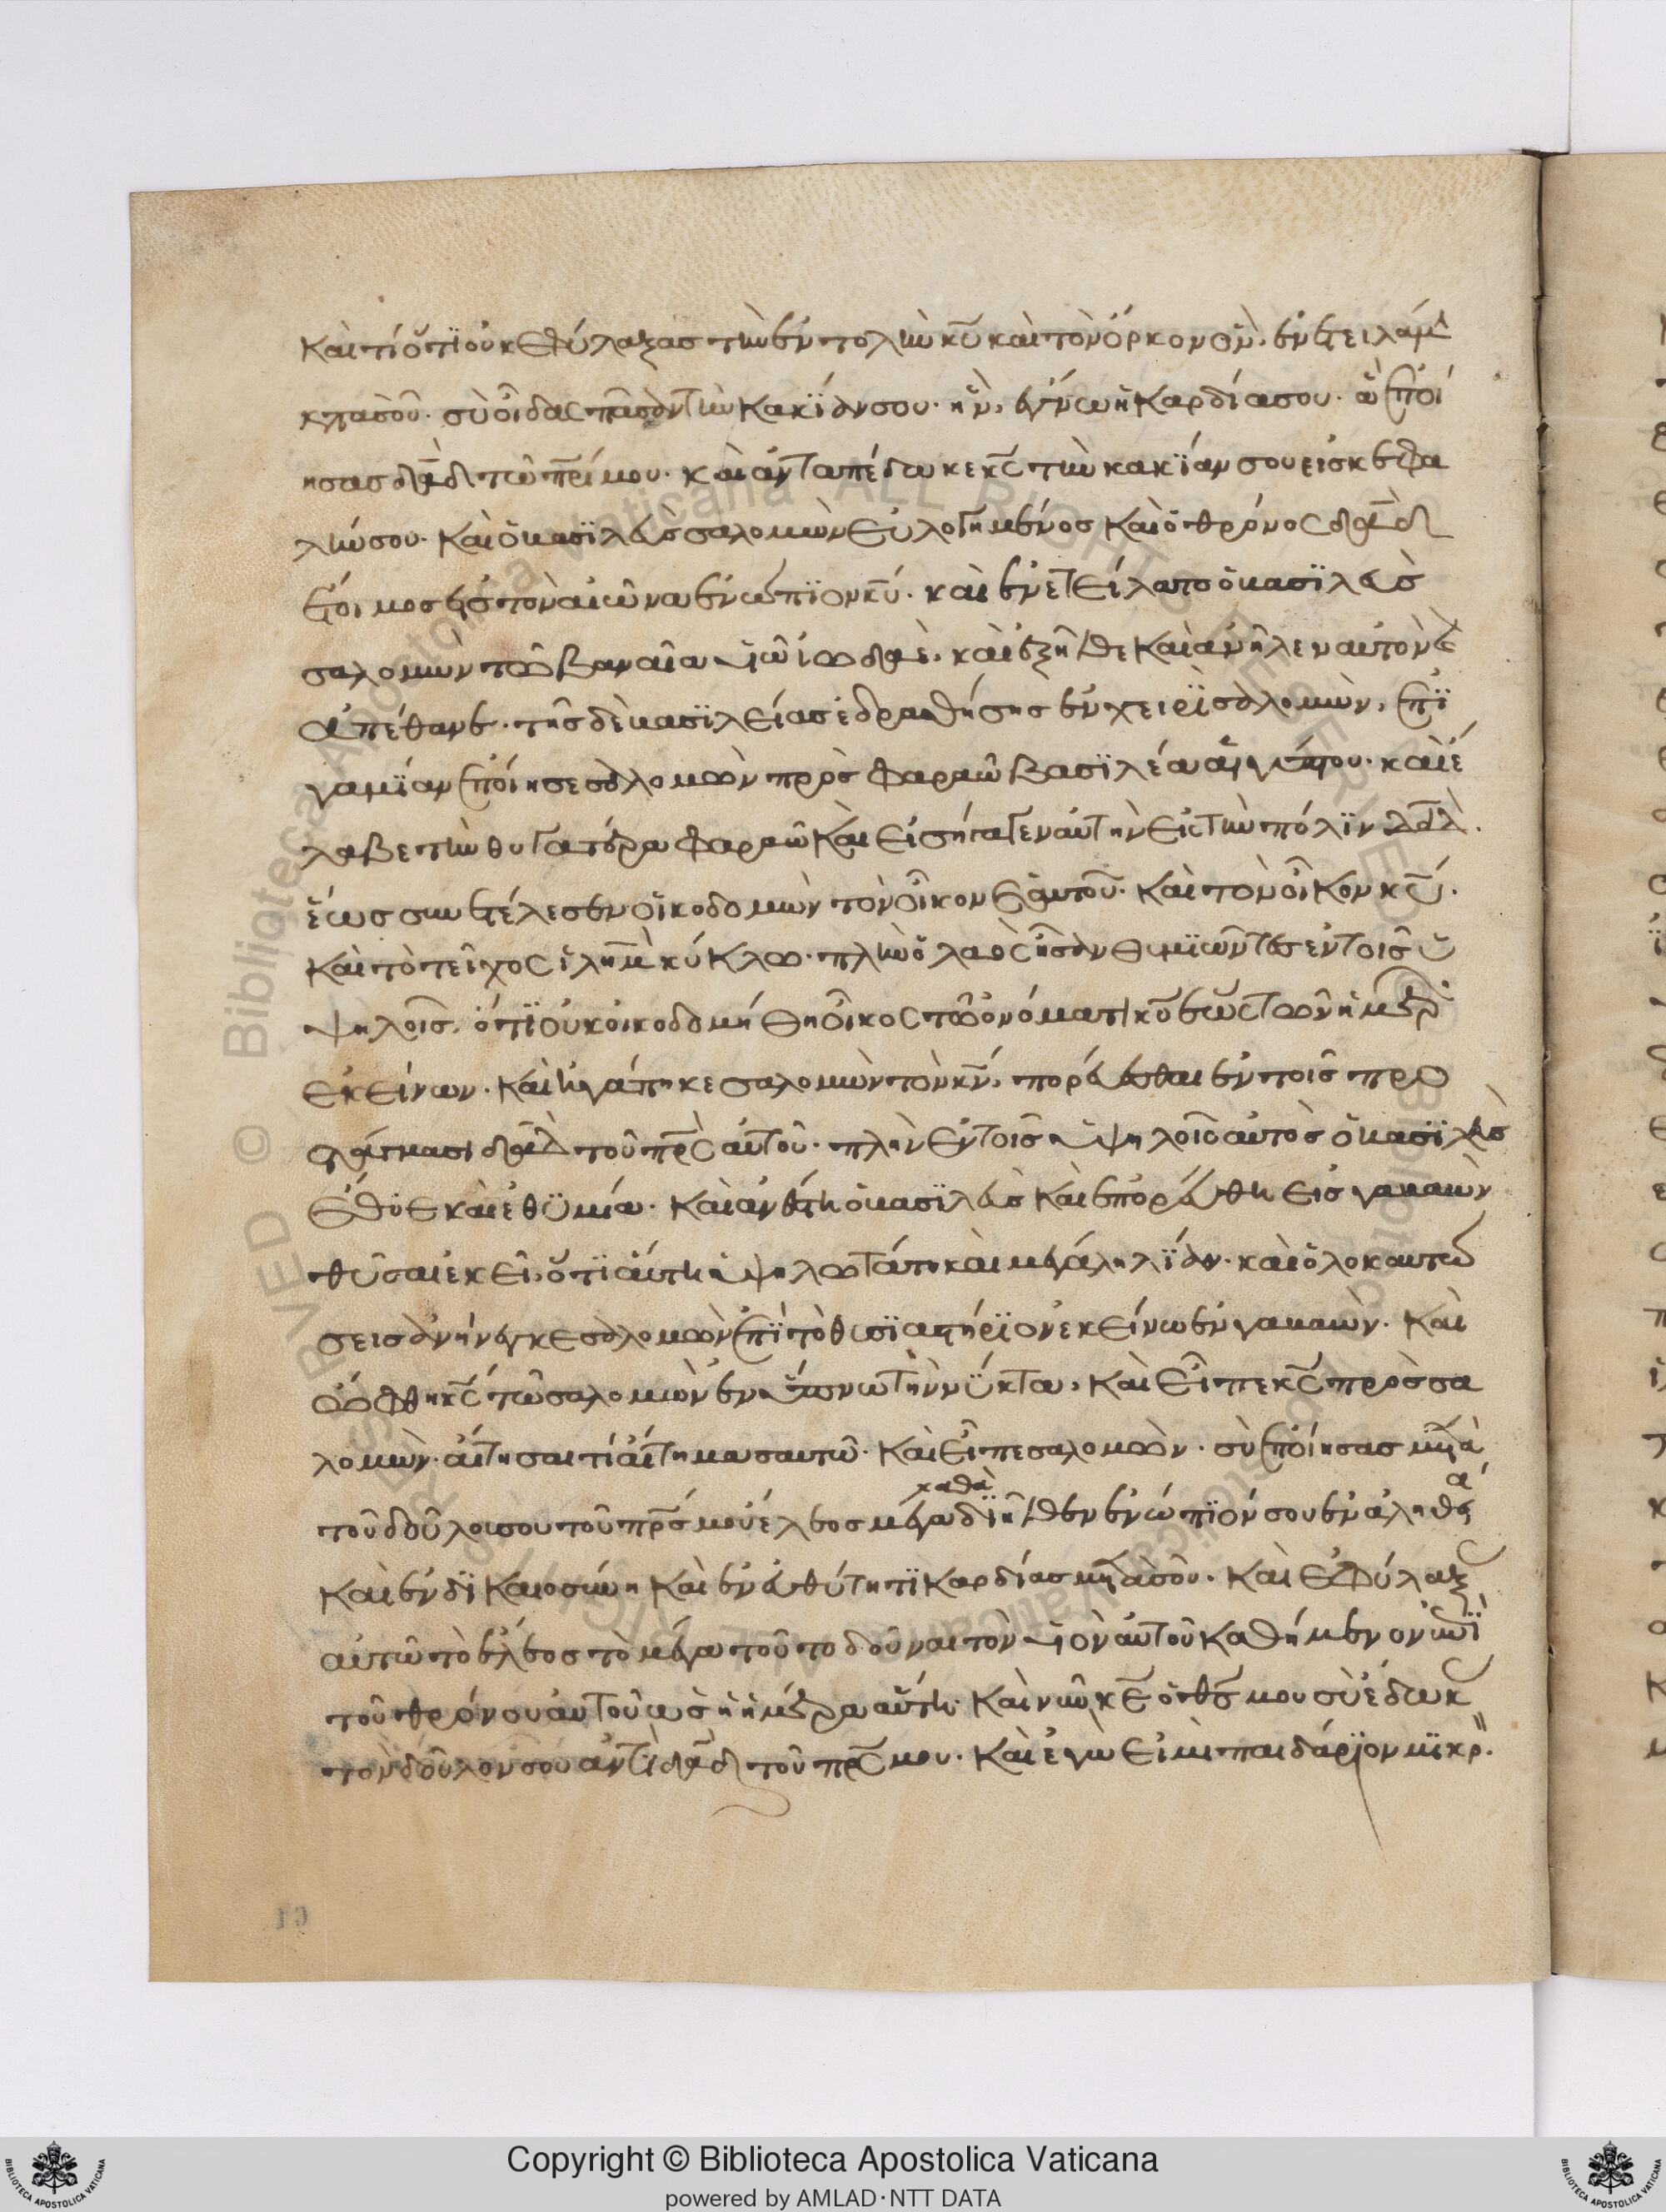 καὶ τί ὅτι οὐκ ἐφύλαξας τὴν ἐντολὴν κυ καὶ τὸν ὅρκον ὃν ἐνετειλάμην
κατὰ σοῦ. σὺ οἶδας πᾶσαν τὴν κακίαν σου. ἣν ἔγνω ἡ καρδία σου. ἃ ἐποί
ησας δαδ τῶ πρί μου. καὶ ἀνταπέδωκε κς τὴν κακίαν σου εἰς κεφα
λήν σου. καὶ ὁ βασιλεὺς σαλομὼν εὐλογημένος καὶ ὁ θρόνος δαδ
ἕτοιμος εἰς τὸν αἰῶνα ἐνώπιον κυ. καὶ ἐνετείλατο ὁ βασιλεὺς
σαλομὼν τῶ βαναία υἱῶ ἰωδαὲ. καὶ ἐξῆλθε καὶ ἀνῆλεν αὐτὸν καὶ
ἀπέθανε. τῆς δὲ βασιλείας ἑδρασθήσης ἐν χειρὶ σαλομὼν, ἐπι
γαμίαν ἐποίησε σαλομὼν πρὸς φαραὼ βασιλέα αἰγύπτου. καὶ ἔ
λαβε τὴν θυγατέρα φαραὼ καὶ εἰσήγαγεν αὐτὴν εἰς τὴν πόλιν δαδ.
ἕως συνετέλεσεν οἰκοδομὼν τὸν οἶκον ἑαυτοῦ. καὶ τὸν οἶκον κυ.
καὶ τὸ τεῖχος ἰλημ κύκλω. πλὴν ὁ λαὸς ἦσαν θυμιῶντες ἐν τοῖς ὑ
ψηλοῖς, ὅτι οὐκ οἰκοδομήθη οἶκος τῶ ὀνόματι κυ ἕως τῶν ἡμερῶν
ἐκείνων. καὶ ἠγάπηκε σαλομὼν τὸν κν, πορεύεσθαι ἐν τοῖς προ
στάγμασι δαδ τοῦ πρς αὐτοῦ. πλὴν ἐν τοῖς ὑψηλοῖς αὐτὸς ὁ βασιλεὺς
ἔθυε καὶ ἐθυμία. καὶ ἀνέστη ὁ βασιλεὺς καὶ ἐπορεύθη εἰς γαβαὼν
θῦσαι ἐκεῖ, ὅτι αὕτη ὑψηλωτάτη καὶ μεγάλη λίαν. καὶ ὁλοκαυτώ
σεις ἀνήνεγκε σαλομὼν ἐπὶ τὸ θυσιαστήριον ἐκείνω ἐν γαβαὼν. καὶ
ὤφθη κς τῶ σαλομὼν ἐν ὕπνω τὴν νύκτα, καὶ εἶπε κς πρὸς σα
λομὼν. αἴτησαι τί αἴτημα σαυτῶ. καὶ εἶπε σαλομὼν. σὺ ἐποίησας μετὰ
τοῦ δούλου σου τοῦ πρς μου ἔλεος μέγα καθὰ διῆλθεν ἐνώπιόν σου ἐν ἀληθεία
καὶ ἐν δικαιοσύνη καὶ ἐν εὐθύτητι καρδίας μετὰ σοῦ. καὶ ἐφύλαξας
αὐτῶ τὸ ἔλεος τὸ μέγα τοῦτο δοῦναι τὸν υἱὸν αὐτοῦ καθήμενον ἐπὶ
τοῦ θρόνου αὐτοῦ ὡς ἡ ἡμέρα αὕτη. καὶ νῦν κε ὁ θς μου σὺ ἔδωκας
τὸν δοῦλον σου ἀντὶ δαδ τοῦ πρς μου. καὶ ἐγώ εἰμι παιδάριον μικρὸν.